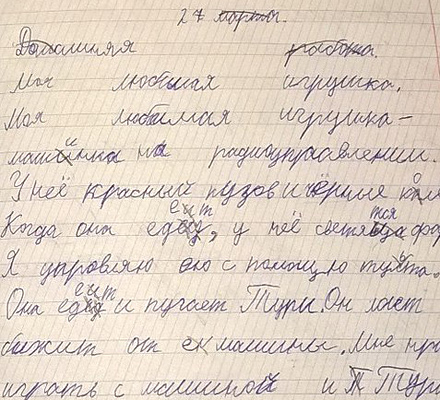 27 марта.
Домашняя работа.
Моя любимая игрушка.
Моя любимая игрушка –
машинка на радиоуправлении.
У неё красный кузов и чёрные кол
Когда она едет, у неё светятся фар
Я управляю ею с помощью пульта.
Она едет и пугает Тури. Он лает
бежит от машины. Мне нра
играть с машиной и Тури